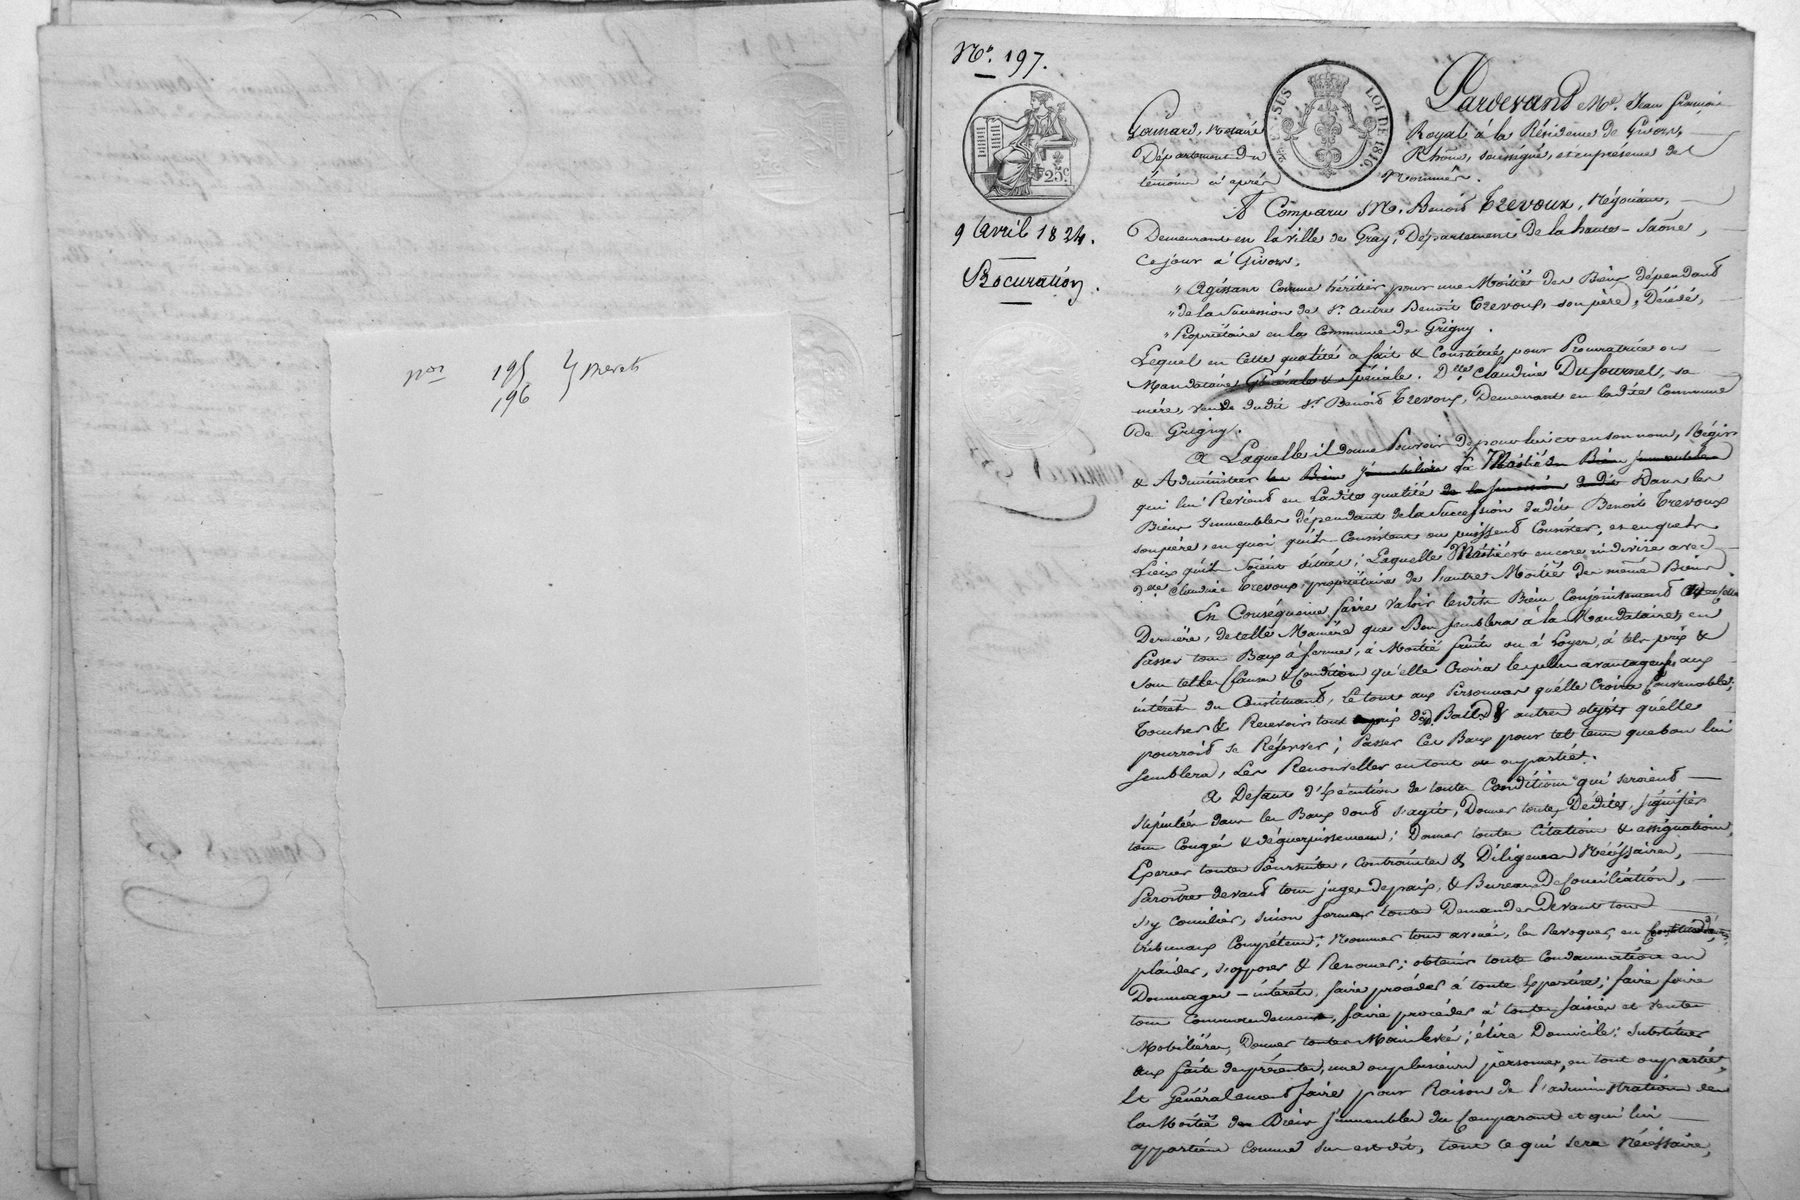 nos 195
196 } Brevets
No. 197.
25 c.
SUS LOI DE 1816.
9 Avril 1824.
Procuration.
Pardevant Me. Jean françois
Gomard, Notaire Royal à la Résidence de Givors,
Département du Rhône, soussigné, et en présence des
témoins ci après Nommés.
A Comparu Mr. Benoit Trevoux, Négociant,
Demeurant en la ville de Gray, Département de la haute-Saône,
ce jour à Givors.
" Agissant Comme héritier pour une Moitié des Biens dépendant
" de la Succession de Sr. autre Benoit Trevoux, son père, Décédé,
" Propriétaire en la Commune de Grigny.
Lequel en Cette qualité a fait & Constitué pour Procuratrice ou
Mandataire Générale & Spéciale, Dlle. Claudine Dufournel, sa
mère, veuve dudit Sr. Benoit Trevoux, Demeurant en ladite Commune
de Grigny.
A Laquelle il donne Pouvoir de pour lui et en son nom, Régir
& Administrer les Biens immeubles la Moitié des Biens immeubles
qui lui Revient en Ladite qualité de la succession dudit Dans les
Biens Immeubles dépendant de la Succession dudit Benoit Trevoux
son père, en quoi qu'ils Consistent ou puissent Consister, et en quels
Lieux qu'ils soient situés; Laquelle Moitié est encore indivise avec
Dlle Claudine Trevoux, propriétaire de l'autre Moitié des mêmes Biens
En Conséquence faire valoir lesdits Biens Conjointement
Dernière, de telle Manière que Bon semblera à la Mandataire, en
Passer tous Baux à fermes, à Moitié fruits ou à Loyer, à tels prix &
sous telles Clauses & Conditions qu'elle Croira les plus avantageuses aux
intérêts du Constituant, le tout aux Personnes qu'elle Croira Convenables;
Toucher & Recevoir tout prix des Baux & autres objets qu'elle
pourroit se Réserver; Passer Ces Baux pour tel tems que bon lui
semblera, les Renouveller en tout ou en partie.
A Defaut d'Exécution de toutes Conditions qui seroient
stipulées dans les Baux dont s'agit, Donner toutes Dédites, signifier
tous Congés & déguerpissement; Donner toutes citations & assignations,
Exercer toutes Poursuites, contraintes & Diligences Nécessaires,
Paroitre devant tous juges de paix, & Bureaux de Conciliation,
s'y concilier, sinon former toutes Demandes Devant tous
tribunaux Compétens; Nommer tous avoués, les Revoquer, en
plaider, s'opposer & Renoncer; obtenir toute Condamnation en
Dommages-intérêts, faire procéder à toute Expertise; faire faire
tous Commandemens, faire procéder à toutes saisies et ventes
Mobilières, Donner toutes Mainlevée; élire Domicile; Substituer
aux faits des présentes, une ou plusieurs personnes, en tout ou partie,
Et Généralement faire pour Raison de l'administration de
la Moitié des Biens Immeubles du Comparant et qui lui
appartient comme sus est dit, tout ce qui sera Nécessaire,